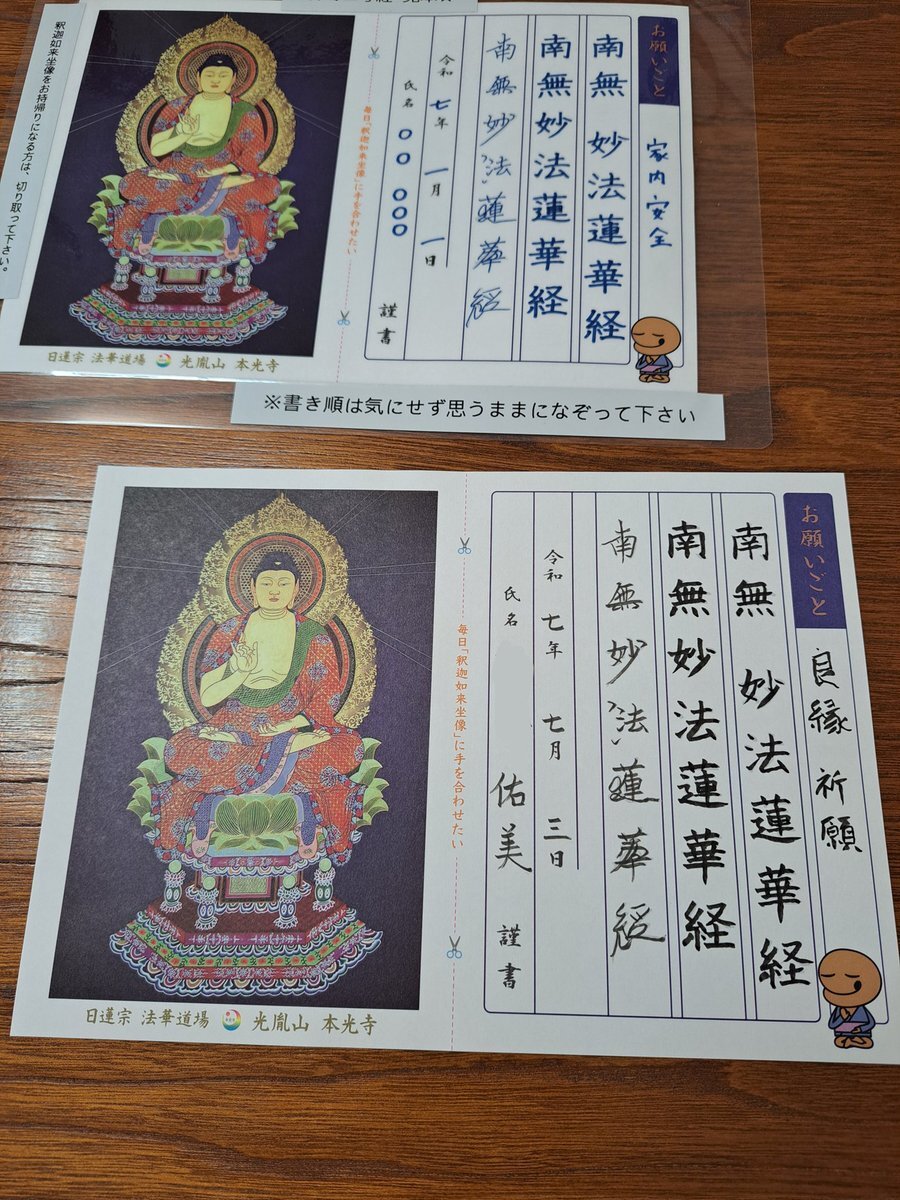 釈迦如来坐像をお持帰りになる方は、切り取って下さい。
お願いごと
家内安全
南無妙法蓮華経
南無妙法蓮華経
南無妙法蓮華経
令和七年一月一日
氏名 〇〇 〇〇〇 謹書
毎日「釈迦如来坐像」に手を合わせたい
日蓮宗 法華道場 光胤山 本光寺
※書き順は気にせず思うままになぞって下さい
お願いごと
良縁 祈願
南無妙法蓮華経
南無妙法蓮華経
南無妙法蓮華経
令和 七年 七月 三日
氏名 佑美 謹書
毎日「釈迦如来坐像」に手を合わせたい
日蓮宗 法華道場 光胤山 本光寺